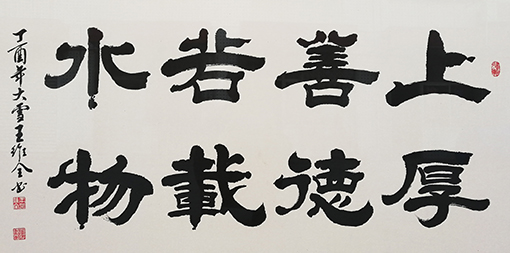 上善若水
厚德載物
丁酉年大雪王维全书